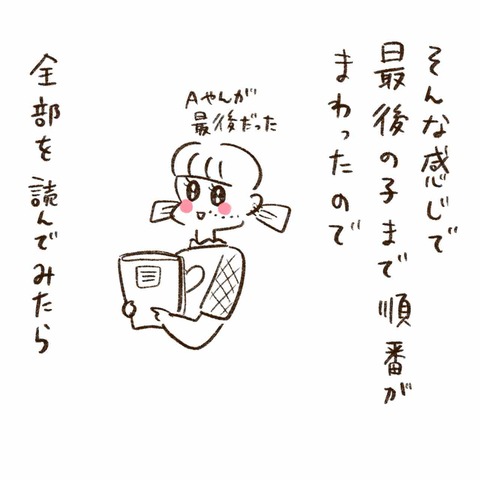 そんな感じで
最後の子まで順番が
まわったので
Aやんが
最後だった
全部を読んでみたら